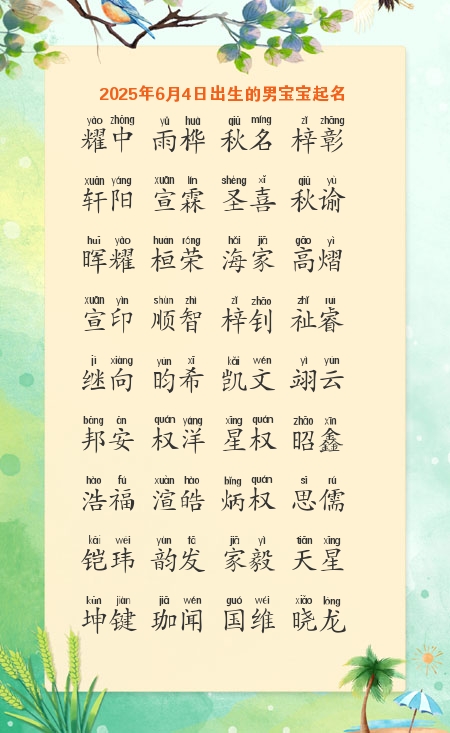 2025年6月4日出生的男宝宝起名
yào zhōng yǔ huà qiū míng zǐ zhāng
耀中 雨桦 秋名 梓彰
xuān yáng xuān lín shèng xǐ qiū yù
轩阳 宣霖 圣喜 秋谕
huī yào huán róng hǎi jiā gāo yì
晖耀 桓荣 海家 高熠
xuān yìn shùn zhì zǐ zhāo zhǐ ruì
宣印 顺智 梓钊 祉睿
jì xiàng yún xī kǎi wén yì yún
继向 昀希 凯文 翊云
bāng ān quán yáng xīng quán zhāo xīn
邦安 权洋 星权 昭鑫
hào fú xuàn hào bǐng quán sī rú
浩福 渲皓 炳权 思儒
kǎi wěi yùn fā jiā yì tiān xīng
铠玮 韵发 家毅 天星
kūn jiàn jiā wén guó wéi xiǎo lóng
坤键 珈闻 国维 晓龙